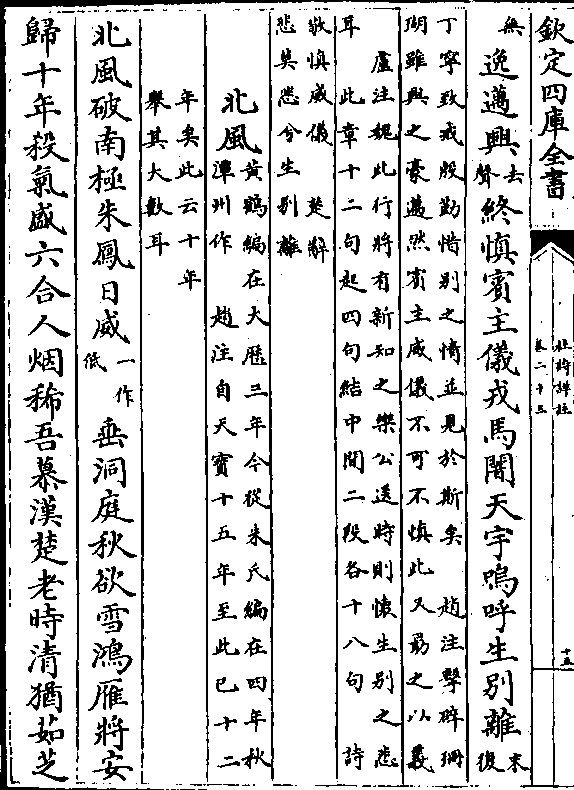 欽定四庫全書
杜詩詳註
卷二十三
十五
無逸邁興去聲終慎賓主儀戎馬闇天宇嗚呼生別離末復
丁寧致戒殷勤惜別之情並見於斯矣 趙注擊碎珊
瑚雖興之豪邁然賓主威儀不可不慎此又勗之以義
盧注魏此行將有新知之樂公送時則懷生別之悲
耳 此章十二句起四句結中間二段各十八句 詩
敬慎威儀 楚辭
悲莫悲兮生別離
北風黃鶴編在大歷三年今從朱氏編在四年秋
潭州作 趙注自天寶十五年至此已十二
年矣此云十年
舉其大數耳
北風破南極朱鳳日威一作低垂洞庭秋欲雪鴻雁將安
歸十年殺氣盛六合人烟稀吾慕漢楚老時清猶茹芝